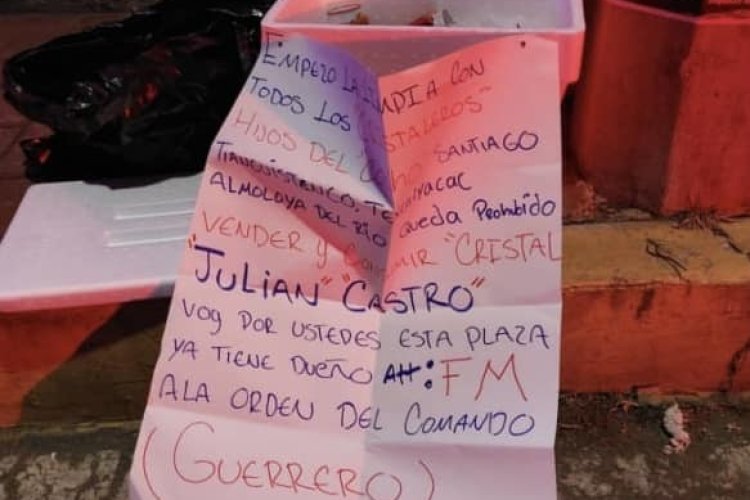 EMPEZO LA CON
TODOS LOS
HIJOS DEL SANTIAGO
TIANGUISTENCO,
ALMOLOYA DEL RIO QUEDA PROHIBIDO
VENDER Y "CRISTAL
"JULIAN" "CASTRO"
VOY POR USTEDES ESTA PLAZA
YA TIENE DUEÑO Att: FM
ALA ORDEN DEL COMANDO
(GUERRERO)